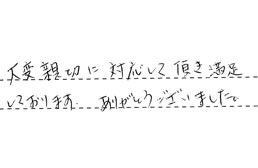 大変親切に対応して頂き満足
しております。ありがとうございました。